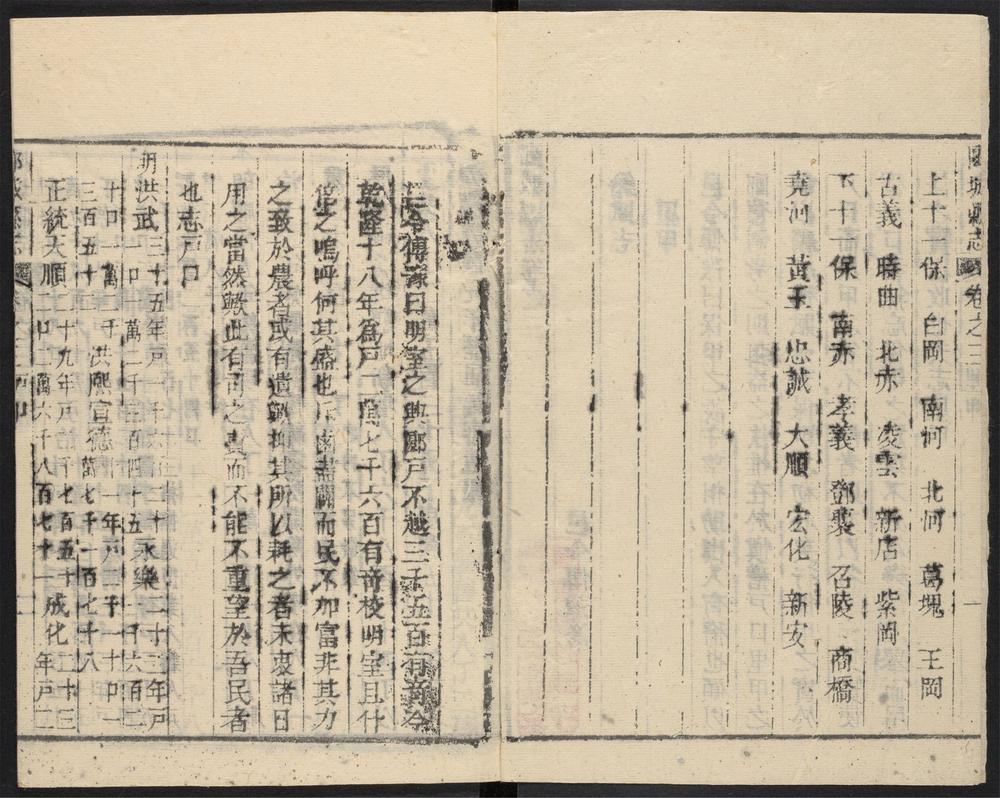 城縣志 卷之三
上十保 白岡 南河 北河 葛塊 王岡
古義 時曲 北赤 凌雲 新店 紫岡
下十一保 南赤 孝義 鄧襄 召陵 商橋
堯河 黃玉 忠誠 大順 宏化 新安
一
令傅豫曰明室之典郾戶不越三千五百有奇今
乾隆十八年為戶一萬七千六百有奇校明室且什
倍之嗚呼何其盛也 鹵盡闢而民不加富非其力
之致於農者或有遺歟抑其所以耗之者未衷諸日
用之當然歟此有司之責而不能不重望於吾民者
也志戶口
明洪武三十五年戶 千 二十 口 萬二千三百四十五 永樂二十二年戶
千口一萬 三百五十 洪熙宣德 一年戶 千一十口一萬七千一百七十八
正統天順 十九年戶 千七百五十口二萬六千八百七十一 成化二十三年戶二